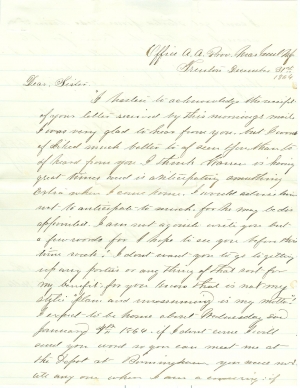 Office A. A. Prov. Mar. Genl
Trenton December 31st
1863
Dear Sister
I hasten to acknowledge the receipt
of your letter received by this mornings mail
I was very glad to hear from you, but I would
liked much better to of seen you than to
of heard from you I think Warren is having
great times and is anticipating something
extra when I come home. I would advise him
not to anticipate to much, for he may be dis
appointed. I can not a great write you but
a few words for I hope to see you before this
time week. I dont want you to go to getting
up any parties or any thing of that sort for
my benefit for you know that is not my
style; plain and unassuming is my motto.
I expect to be home about Wednesday
January 4th 1864. if I dont come I will
send you word so you can meet me at
the Depot at you need not
tell any one when I am a coming; if